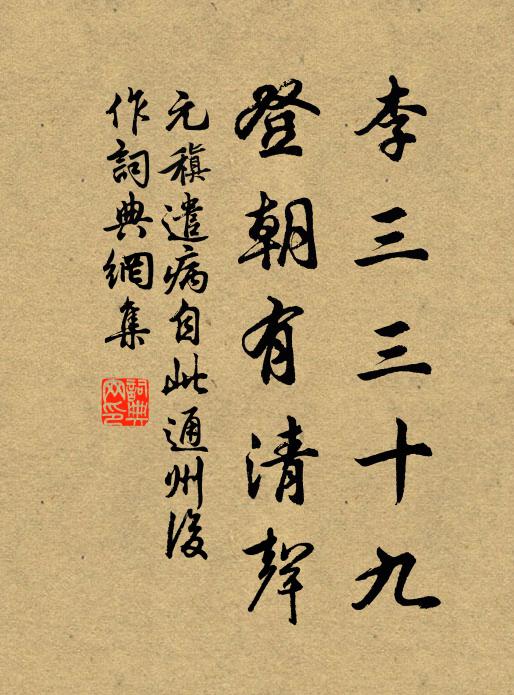 李三三十九
登朝有清聲
元稹遣病自此通州後
作詞典網集
詞典網印